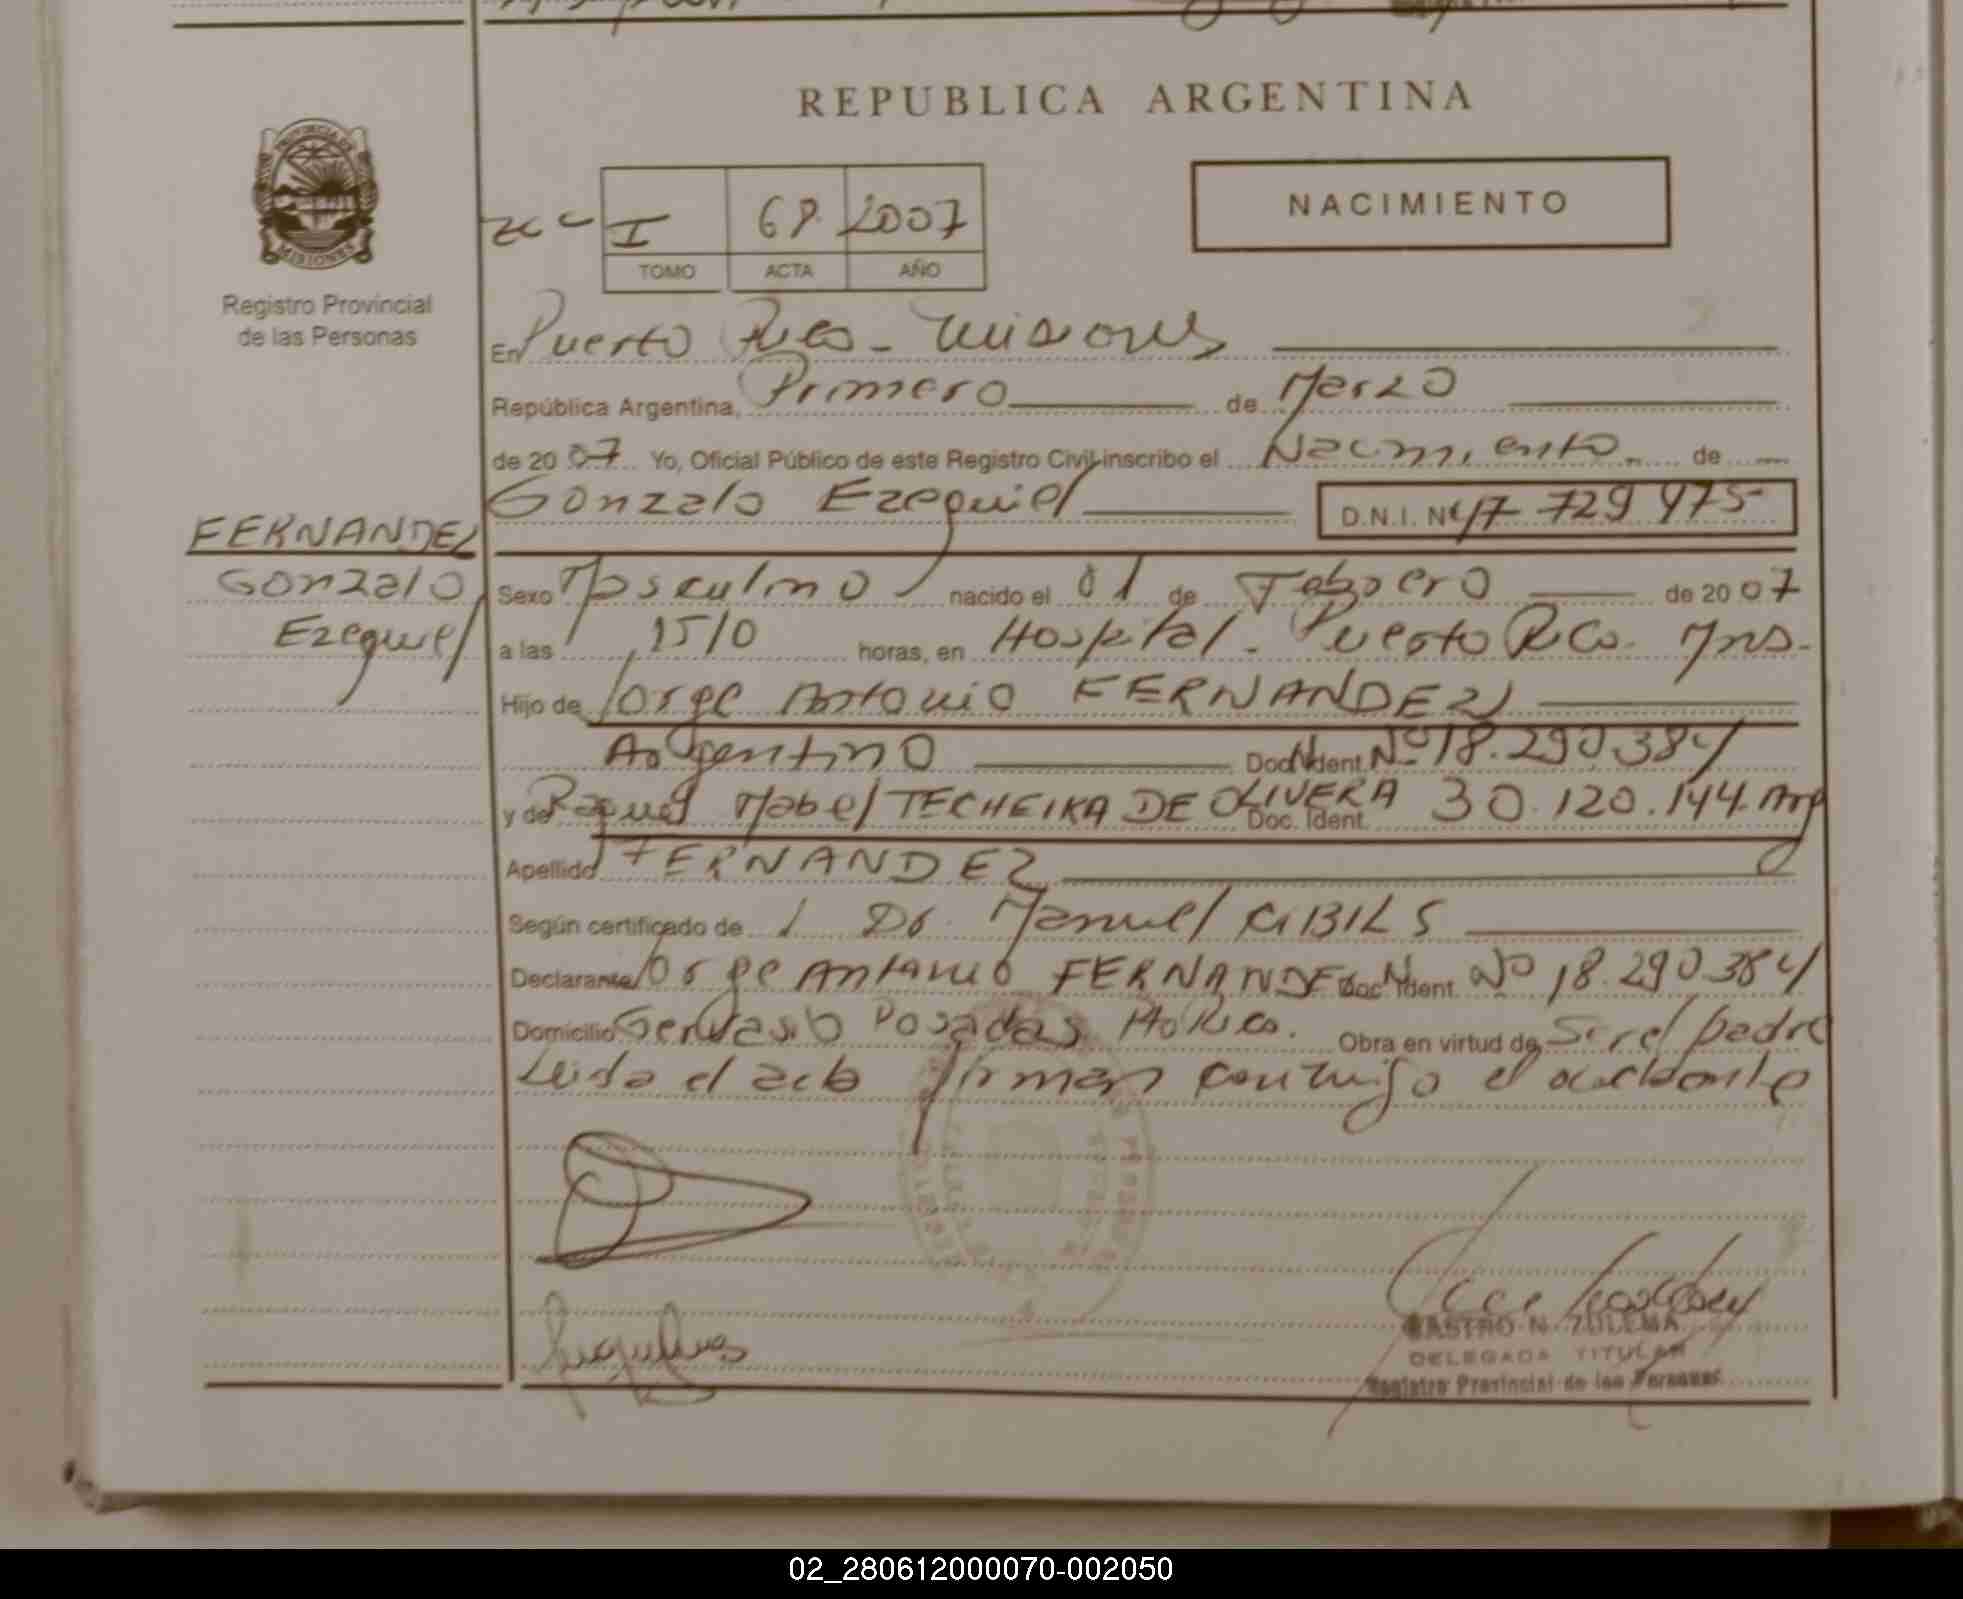 REPUBLICA ARGENTINA
PROVINCIA DE
MISIONES
Registro Provincial
de las Personas
I 68 2007
TOMO ACTA AÑO
NACIMIENTO
En Puerto Rico - Misiones
República Argentina, Primero de Marzo
de 2007 Yo, Oficial Público de este Registro Civil inscribo el Nacimiento de
Gonzalo Ezequiel D.N.I. Nº 47 729 975
FERNANDEZ
Gonzalo
Ezequiel
Sexo Masculino nacido el 01 de Febrero de 2007
a las 1510 horas, en Hospital - Puerto Rico - Mns.
Hijo de Jorge Antonio FERNANDEZ
Argentino Doc. Ident. Nº 18.290.384
y de Raquel Mabel TECHEIRA DE OLIVERA Doc. Ident. 30.120.144 Arg
Apellido FERNANDEZ
Según certificado de Dr. Manuel CIBILS
Declarante Jorge Antonio FERNANDEZ Doc. Ident. Nº 18.290.384
Domicilio Gervasio Posadas Pto Rico. Obra en virtud de Ser el padre
Leida el acta firman conmigo el declarante
CASTRO N. ZULEMA
DELEGADA TITULAR
Registro Provincial de las Personas
02_280612000070-002050